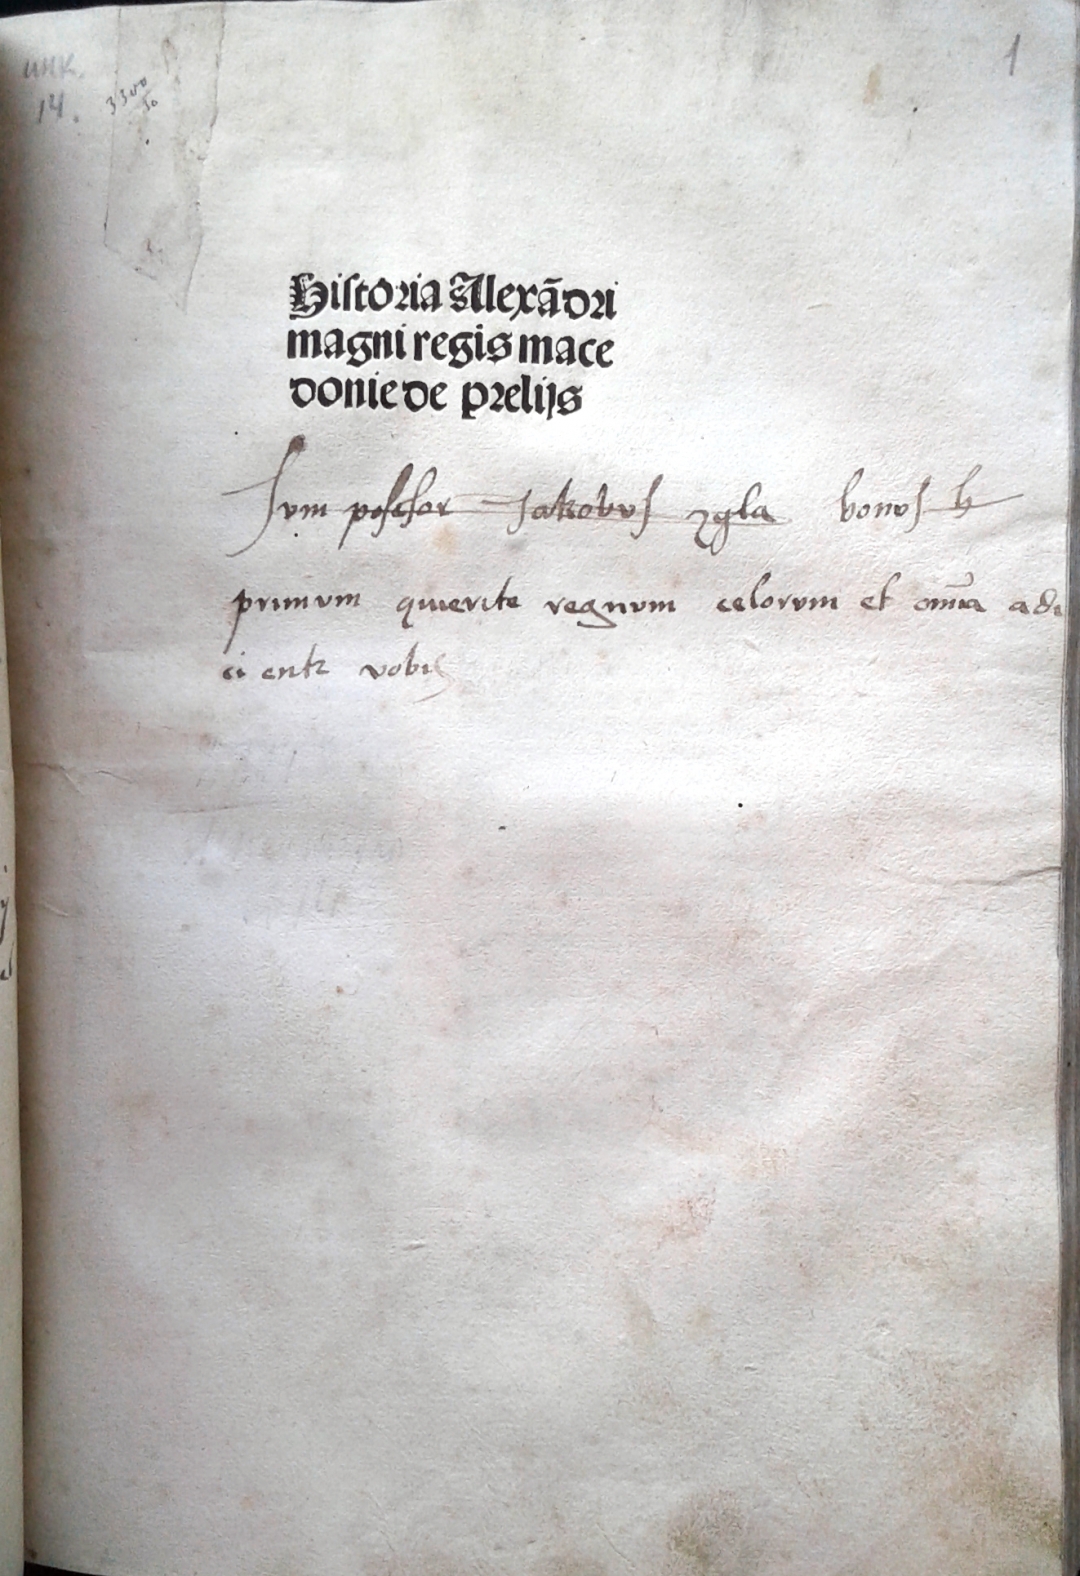 инк.
14.
3300
50
1
Historia Alexãdri
magni regis mace
donie de prelijs
Sum posesor Jakobus zgla bonus h
primum quierite regnum celorum et omīa adi
ci entr vobis